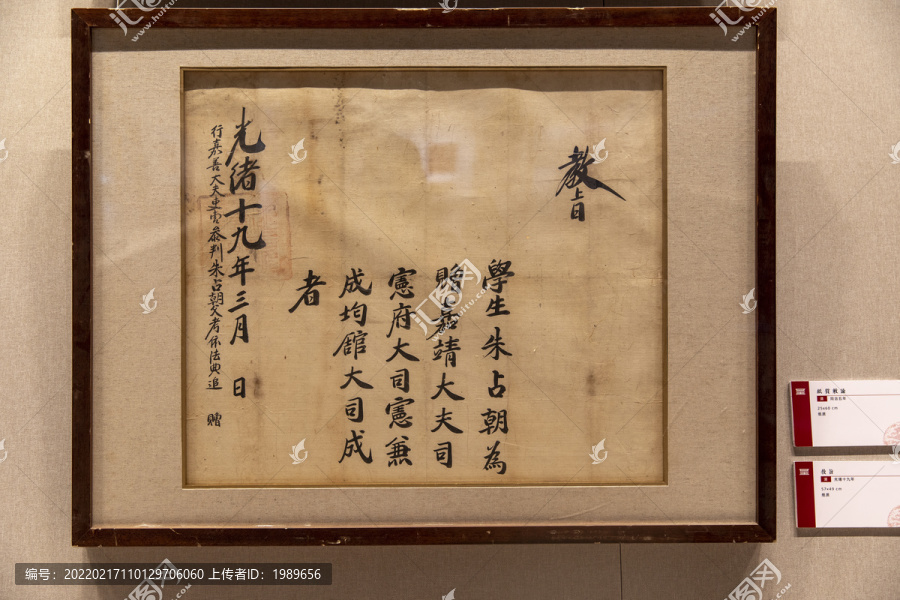 教旨
學生朱占朝為
贈嘉靖大夫司
憲府大司憲兼
成均館大司成
者
光緒十九年三月 日
行嘉善大夫吏曹叅判朱占朝父考依法典追 贈
57x49 cm
编号：20220217110129706060 上传者ID：1989656